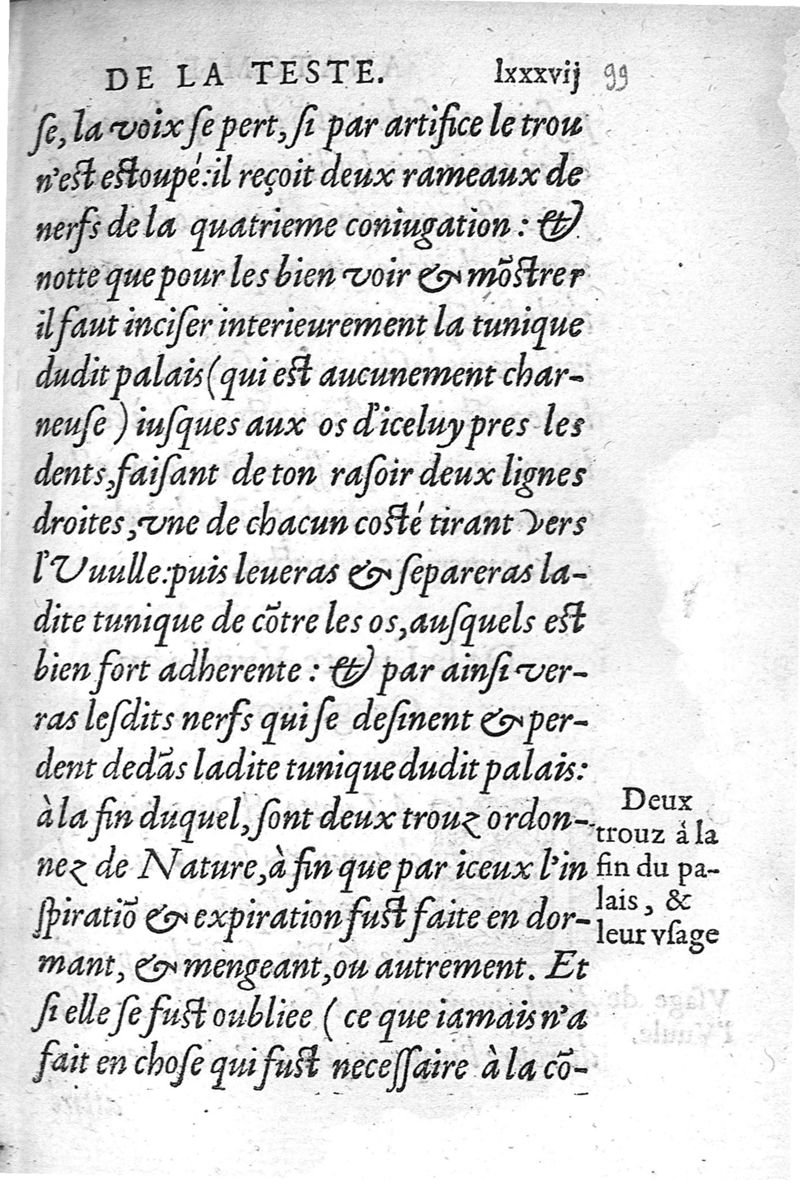 DE LA TESTE. lxxxvij 99
ſe, la voix ſe pert, ſi par artifice le trou
n'eſt eſtoupé: il reçoit deux rameaux de
nerfs de la quatrieme coniugation : &
notte que pour les bien voir & mõſtrer
il faut inciſer interieurement la tunique
dudit palais (qui eſt aucunement char-
neuſe ) iuſques aux os d'iceluy pres les
dents, faiſant de ton raſoir deux lignes
droites, vne de chacun coſté tirant vers
l'Vuulle: puis leueras & ſepareras la-
dite tunique de cõtre les os, auſquels eſt
bien fort adherente : & par ainſi ver-
ras leſdits nerfs qui ſe deſinent & per-
dent dedãs ladite tunique dudit palais:
à la fin duquel, ſont deux trouz ordon-
nez de Nature, à fin que par iceux l'in
ſpiratiõ & expiration fuſt faite en dor-
mant, & mengeant, ou autrement. Et
ſi elle ſe fuſt oubliee ( ce que iamais n'a
fait en choſe qui fuſt neceſſaire à la cõ-
Deux
trouz à la
fin du pa-
lais, &
leur vſage